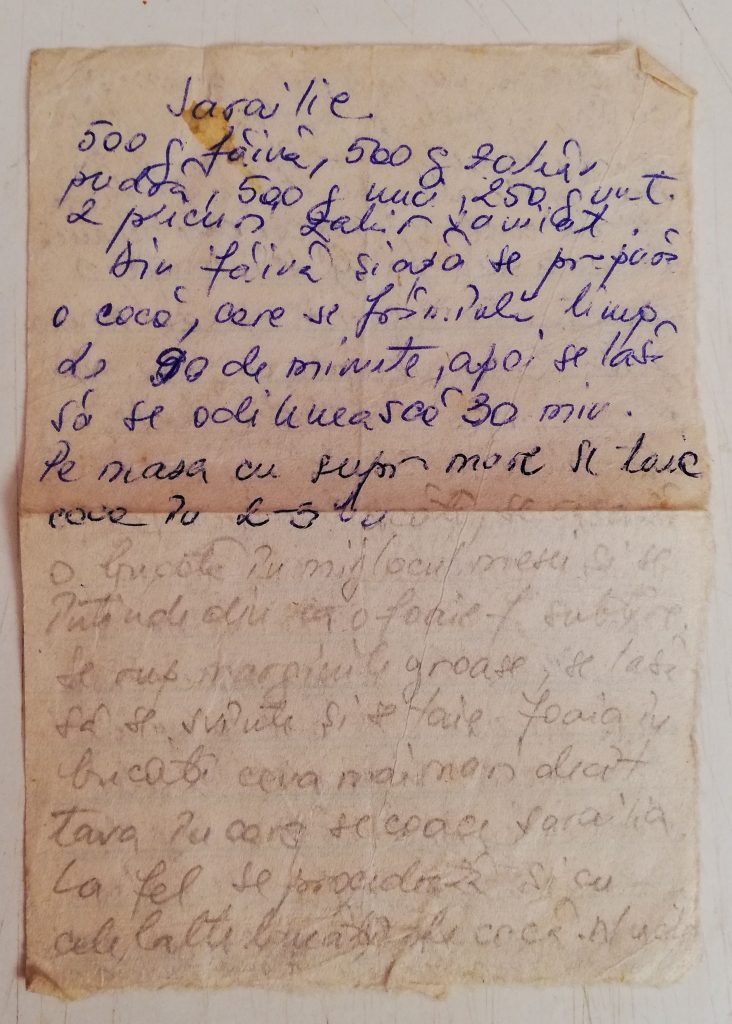 Sarailie
500 g făină, 500 g zahăr
pudră, 500 g nuci, 250 g unt.
2 plicuri zahăr vanilat.
Din făină și apă se
o cocă, care se frămîntă timp
de 90 de minute, apoi se lasă
să se odihnească 30 min.
Pe masa cu supr mare se taie
coca în 2-3 bu
o bucată în mijlocul mesei și se
întinde din ea o foaie f subțire.
Se rup marginile groase, se lasă
să se svînte și se taie foaia în
bucăți ceva mai mari decît
tava în care se coace sarailia.
La fel se procedează și cu
celelalte bucăți de cocă.